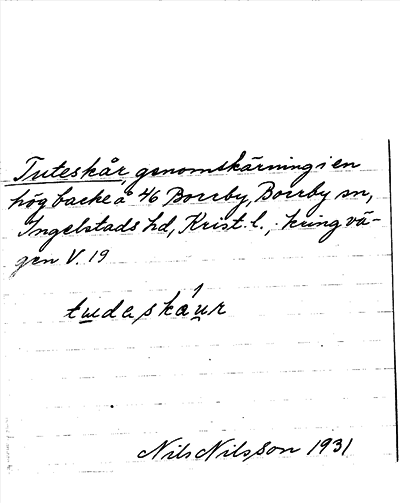 Tuteskår, genomskärning i en
hög backe å 46 Borrby, Borrby sn,
Ingelstads hd, Krist. l., kring vä-
gen V. 19
tudaskáur
Nils Nilsson 1931